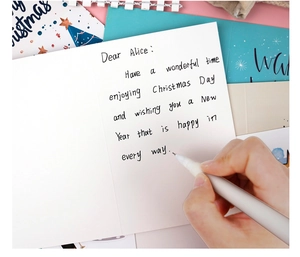 Christmas
Dear Alice:
Have a wonderful time
enjoying Christmas Day
and wishing you a New
Year that is happy in
every way.